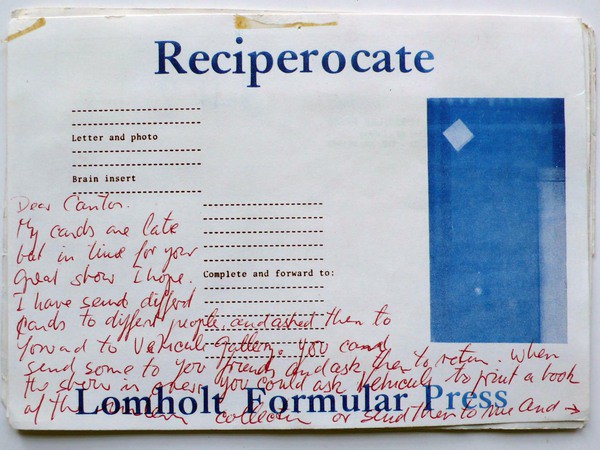 Reciperocate
Letter and photo
Brain insert
Complete and forward to:
Dear Cantor.
My cards are late
but in time for your
Great show I hope.
I have send differd
cards to differt people and asked them to
forward to Vehicule Gallery. You can
send some to you friends and ask them to return. When
the show in over you could ask Vehicule to print a book
of the collection or send them to me and →
Lomholt Formular Press